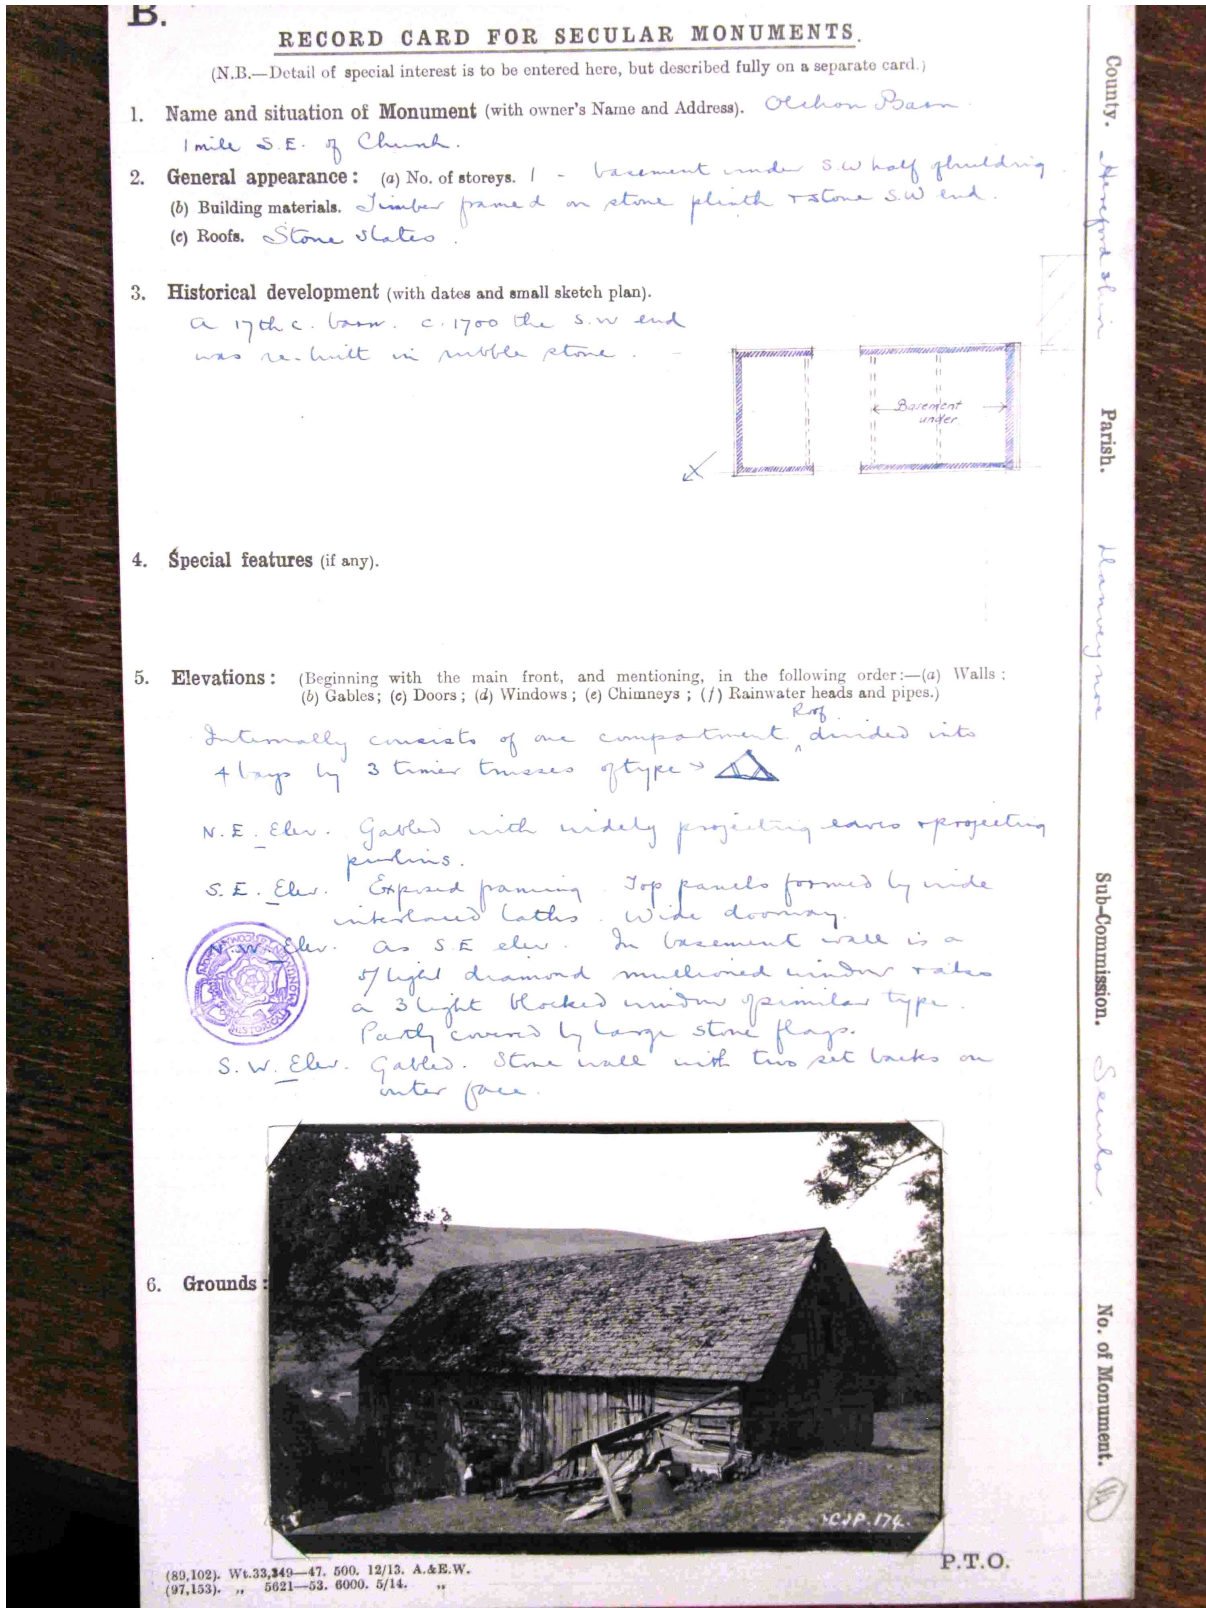 B.
RECORD CARD FOR SECULAR MONUMENTS.
(N.B.—Detail of special interest is to be entered here, but described fully on a separate card.)
1. Name and situation of Monument (with owner's Name and Address). Olchon Barn
1 mile S.E. of Church.
2. General appearance: (a) No. of storeys. 1 - basement under S.W half of building
(b) Building materials. Timber framed on stone plinth + stone S.W end.
(c) Roofs. Stone slates.
3. Historical development (with dates and small sketch plan).
A 17th c. barn. c. 1700 the S.W end
was re-built in rubble stone.
Basement
under
4. Special features (if any).
5. Elevations: (Beginning with the main front, and mentioning, in the following order:—(a) Walls;
(b) Gables; (c) Doors; (d) Windows; (e) Chimneys; (f) Rainwater heads and pipes.)
Roof
Internally consists of one compartment ^ divided into
4 bays by 3 timer trusses of type
N.E. Elev. Gabled with widely projecting eaves + projecting
purlins.
S.E. Elev. Exposed framing. Top panels formed by wide
interlaced laths. Wide doorway.
N.W. Elev. As S.E elev. In basement wall is a
5/light diamond mullioned window + also
a 3 light blocked window of similar type.
Partly covered by large stone flags.
S.W. Elev. Gabled. Stone wall with two set backs on
outer face.
6. Grounds:
CJP.174.
(89,102). Wt.33,349—47. 500. 12/13. A.&E.W.
(97,153). „ 5621—53. 6000. 5/14. „
P.T.O.
County. Herefordshire
Parish. Llanveynoe
Sub-Commission. Secular.
No. of Monument.